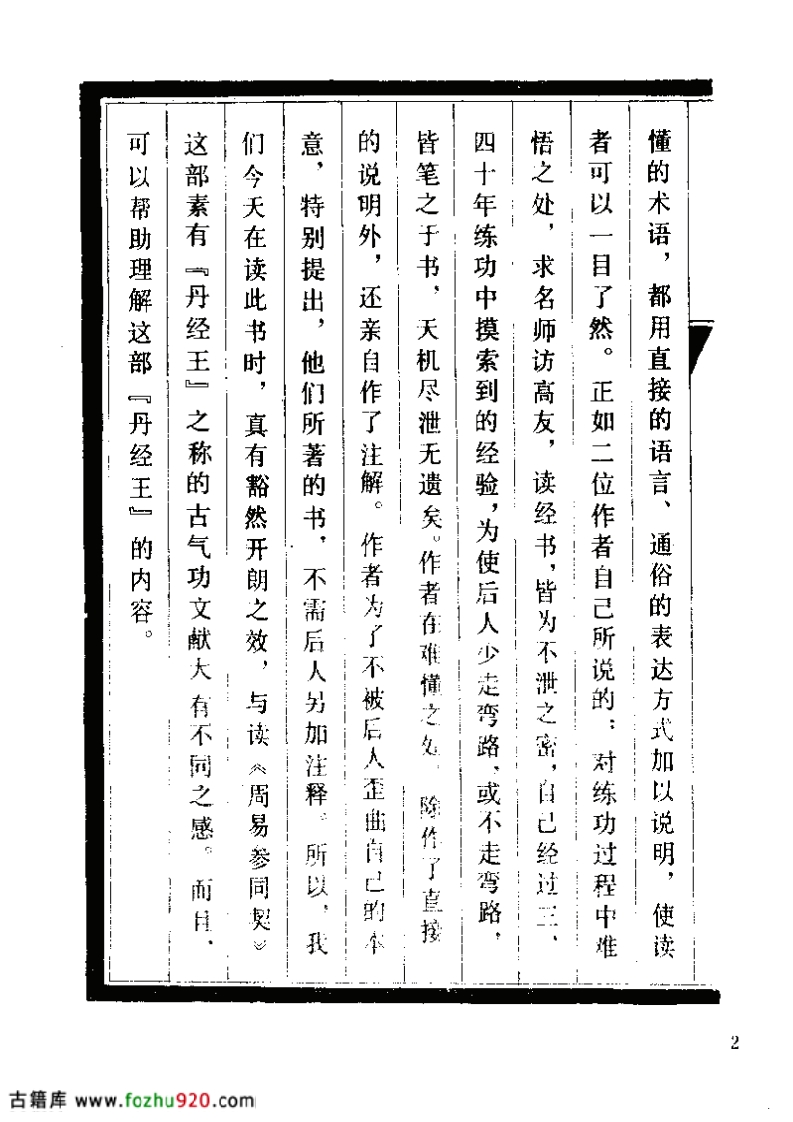 懂的术语，都用直接的语言、通俗的表达方式加以说明，使读
者可以一目了然。正如二位作者自己所说的：对练功过程中难
悟之处，求名师访高友，读经书，皆为不泄之密，自己经过三、
四十年练功中摸索到的经验，为使后人少走弯路、或不走弯路，
皆笔之于书，天机尽泄无遗矣。作者在难懂之处，除作了直接
的说明外，还亲自作了注解。作者为了不被后人歪曲自己的本
意，特别提出，他们所著的书，不需后人另加注释。所以，我
们今天在读此书时，真有豁然开朗之效，与读《周易参同契》
这部素有『丹经王』之称的古气功文献大有不同之感。而且，
可以帮助理解这部『丹经王』的内容。
2
古籍库 www.fozhu920.com